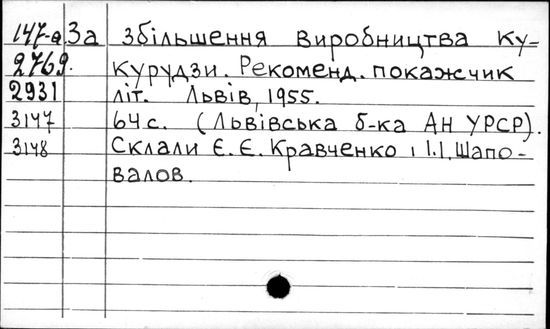 147-а За збільшення виробництва ку-
2769. курудзи. Рекоменд. покажчик
2931 літ. Львів, 1955.
3147 64 с. (Львівська б-ка АН УРСР).
3148 Склали Є. Є. Кравченко і І. І. Шапо-
валов.